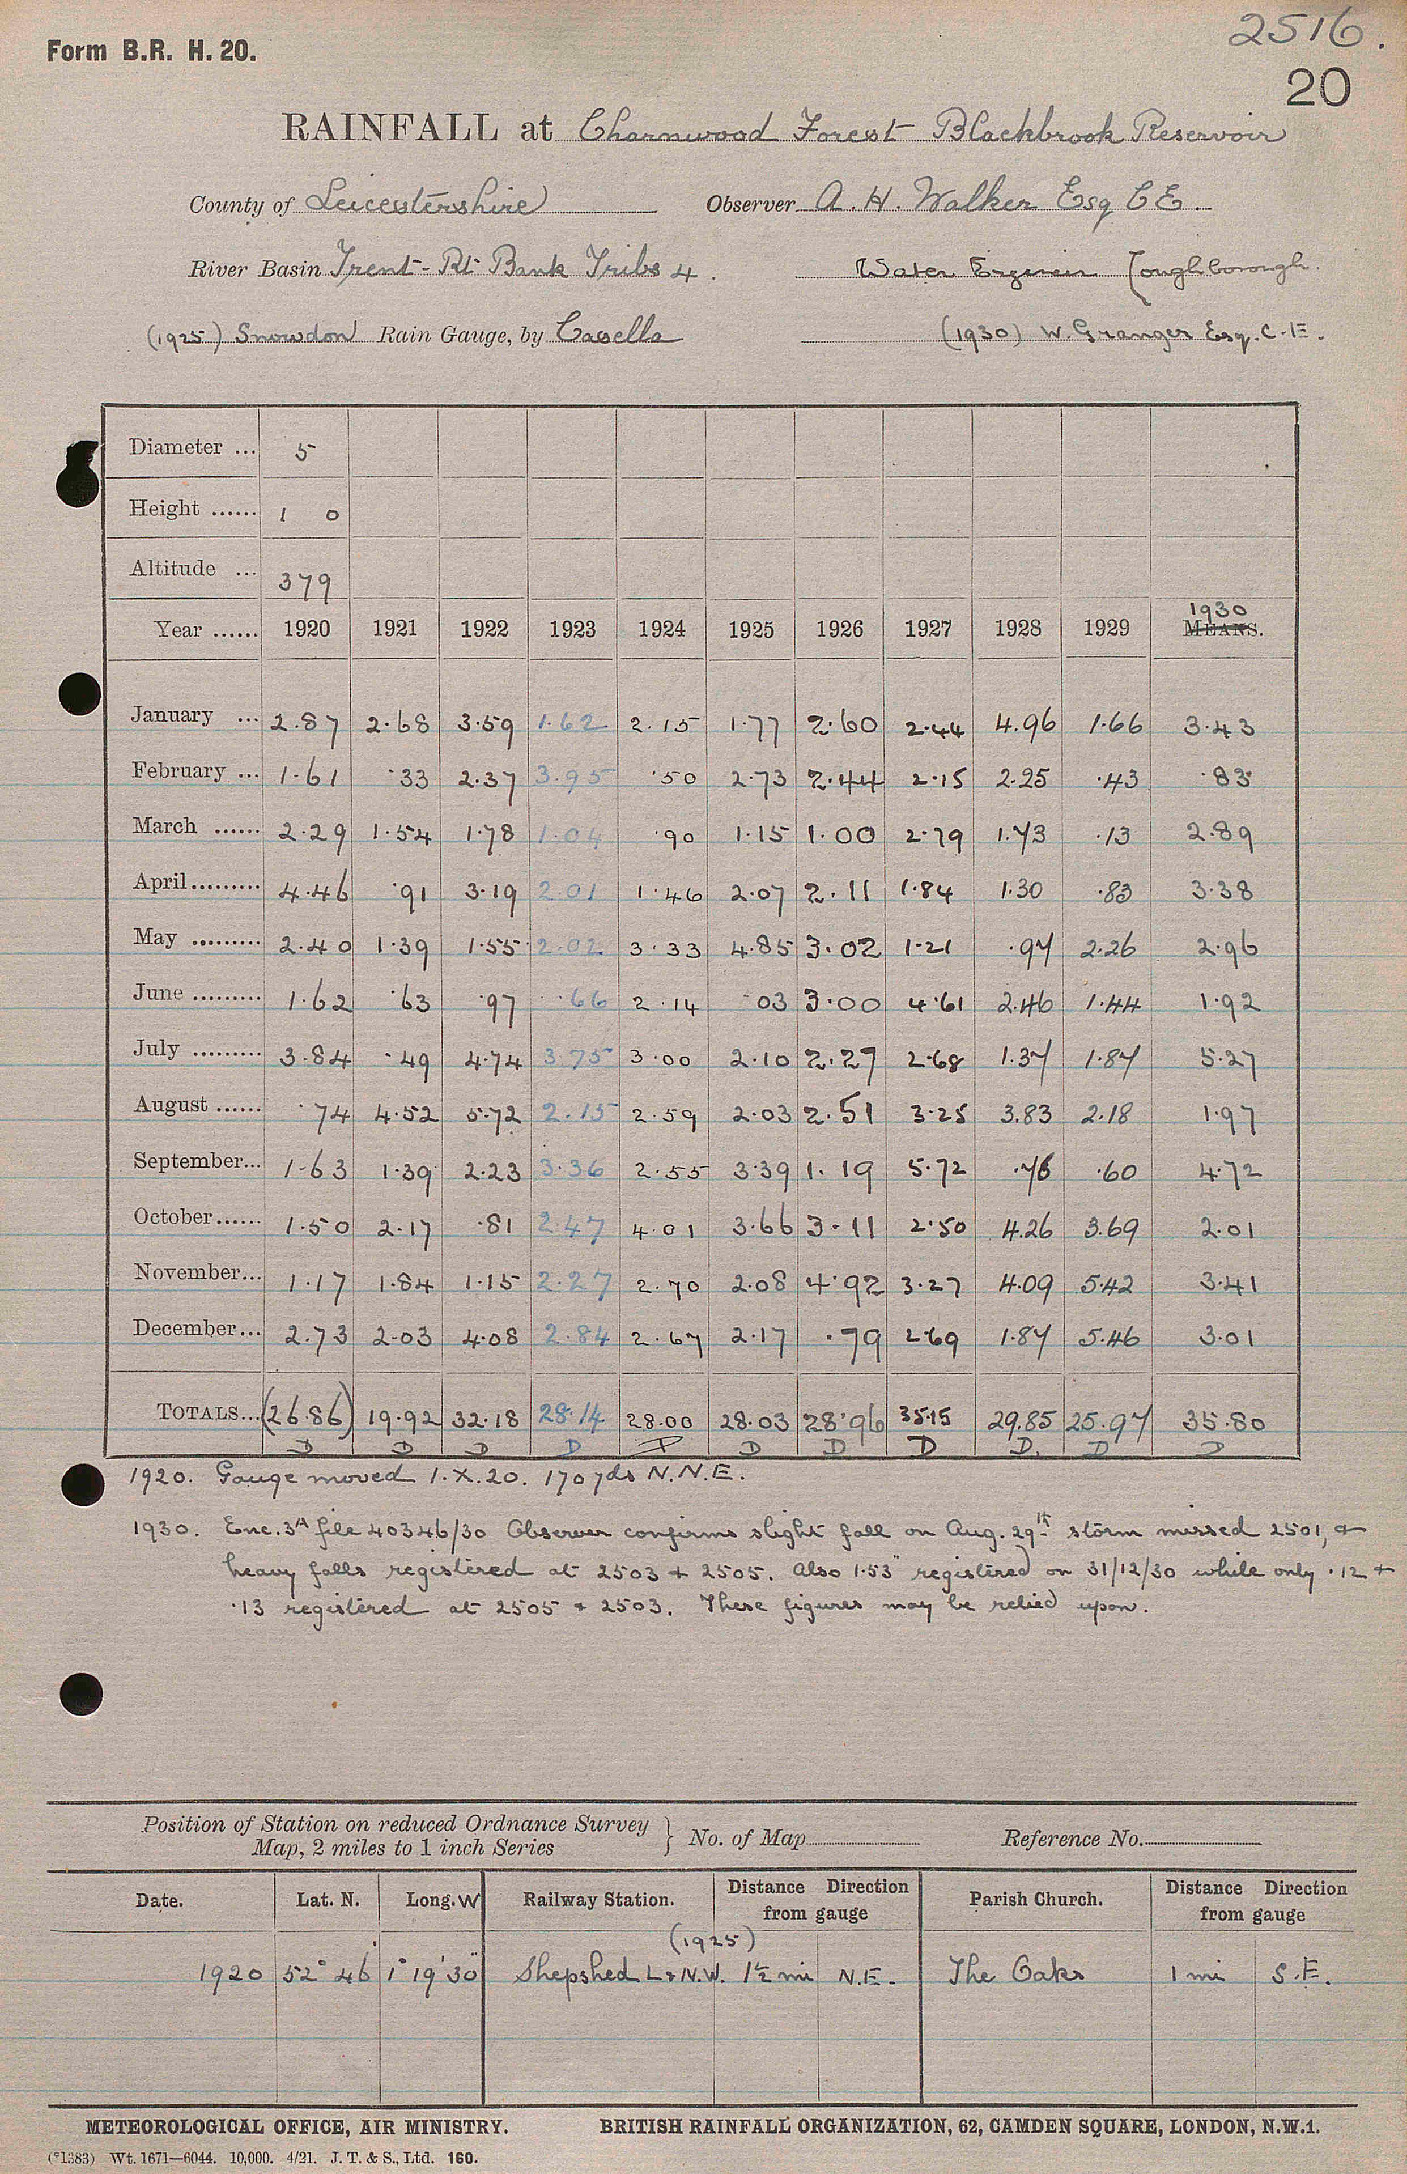 Form B.R. H. 20.
2516.
20
RAINFALL at Charnwood Forest Blackbrook Reservoir
County of Leicestershire Observer A. H. Walker Esq C E
River Basin Trent - Rt Bank Tribs 4. Water Engineer Loughborough.
(1925) Snowdon Rain Gauge, by Casella (1930) W. Granger Esq. C.E.
Diameter ... 5
Height ...... 1 0
Altitude ... 379
1930
Year ...... 1920 1921 1922 1923 1924 1925 1926 1927 1928 1929 MEANS.
January ... 2.87 2.68 3.59 1.62 2.15 1.77 2.60 2.44 4.96 1.66 3.43
February ... 1.61 .33 2.37 3.95 .50 2.73 2.44 2.15 2.25 .43 .83
March ...... 2.29 1.54 1.78 1.04 .90 1.15 1.00 2.79 1.73 .13 2.89
April......... 4.46 .91 3.19 2.01 1.46 2.07 2.11 1.84 1.30 .83 3.38
May ......... 2.40 1.39 1.55 2.02 3.33 4.85 3.02 1.21 .97 2.26 2.96
June ......... 1.62 .63 .97 .66 2.14 .03 3.00 4.61 2.46 1.44 1.92
July ......... 3.84 .49 4.74 3.75 3.00 2.10 2.27 2.68 1.37 1.87 5.27
August ...... .74 4.52 5.72 2.15 2.59 2.03 2.51 3.25 3.83 2.18 1.97
September... 1.63 1.39 2.23 3.36 2.55 3.39 1.19 5.72 .76 .60 4.72
October...... 1.50 2.17 .81 2.47 4.01 3.66 3.11 2.50 4.26 3.69 2.01
November... 1.17 1.84 1.15 2.27 2.70 2.08 4.92 3.27 4.09 5.42 3.41
December... 2.73 2.03 4.08 2.84 2.67 2.17 .79 2.69 1.87 5.46 3.01
TOTALS... (26.86) 19.92 32.18 28.14 28.00 28.03 28.96 35.15 29.85 25.97 35.80
D D D D D D D D D. D D
1920. Gauge moved 1.X.20. 170 yds N.N.E.
1930. Enc. 3A file 40346/30 Observer confirms slight fall on Aug. 29th storm missed 2501, &
heavy falls registered at 2503 + 2505. Also 1.53" registered on 31/12/30 while only .12 +
.13 registered at 2505 + 2503. These figures may be relied upon.
Position of Station on reduced Ordnance Survey
Map, 2 miles to 1 inch Series } No. of Map Reference No.
Date. Lat. N. Long. W Railway Station. Distance Direction from gauge Parish Church. Distance Direction from gauge
(1925)
1920 52° 46' 1° 19' 30" Shepshed L & N.W. 1½ mi N.E. The Oaks 1 mi S.E.
METEOROLOGICAL OFFICE, AIR MINISTRY. BRITISH RAINFALL ORGANIZATION, 62, CAMDEN SQUARE, LONDON, N.W.1.
(*1383) Wt. 1671—6044. 10,000. 4/21. J. T. & S., Ltd. 160.